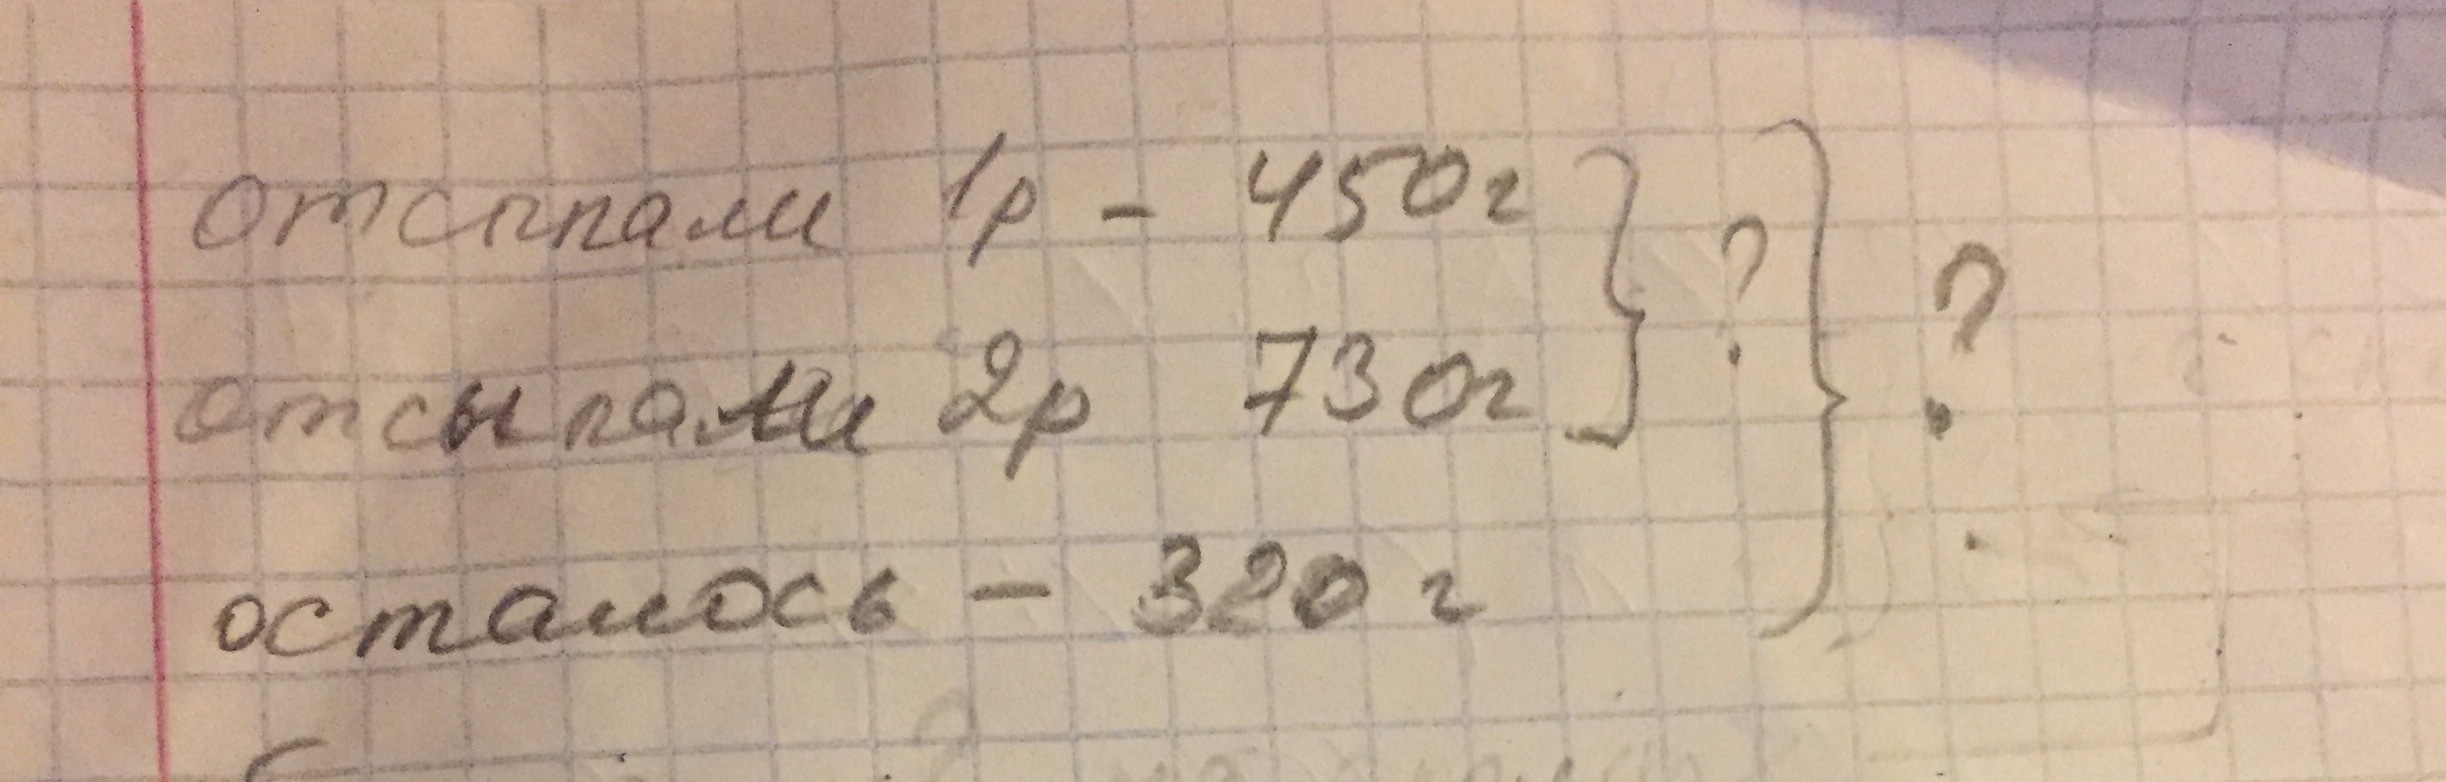 отсыпали 1р - 450г } ? } ?
отсыпали 2р 730г
осталось - 320 г